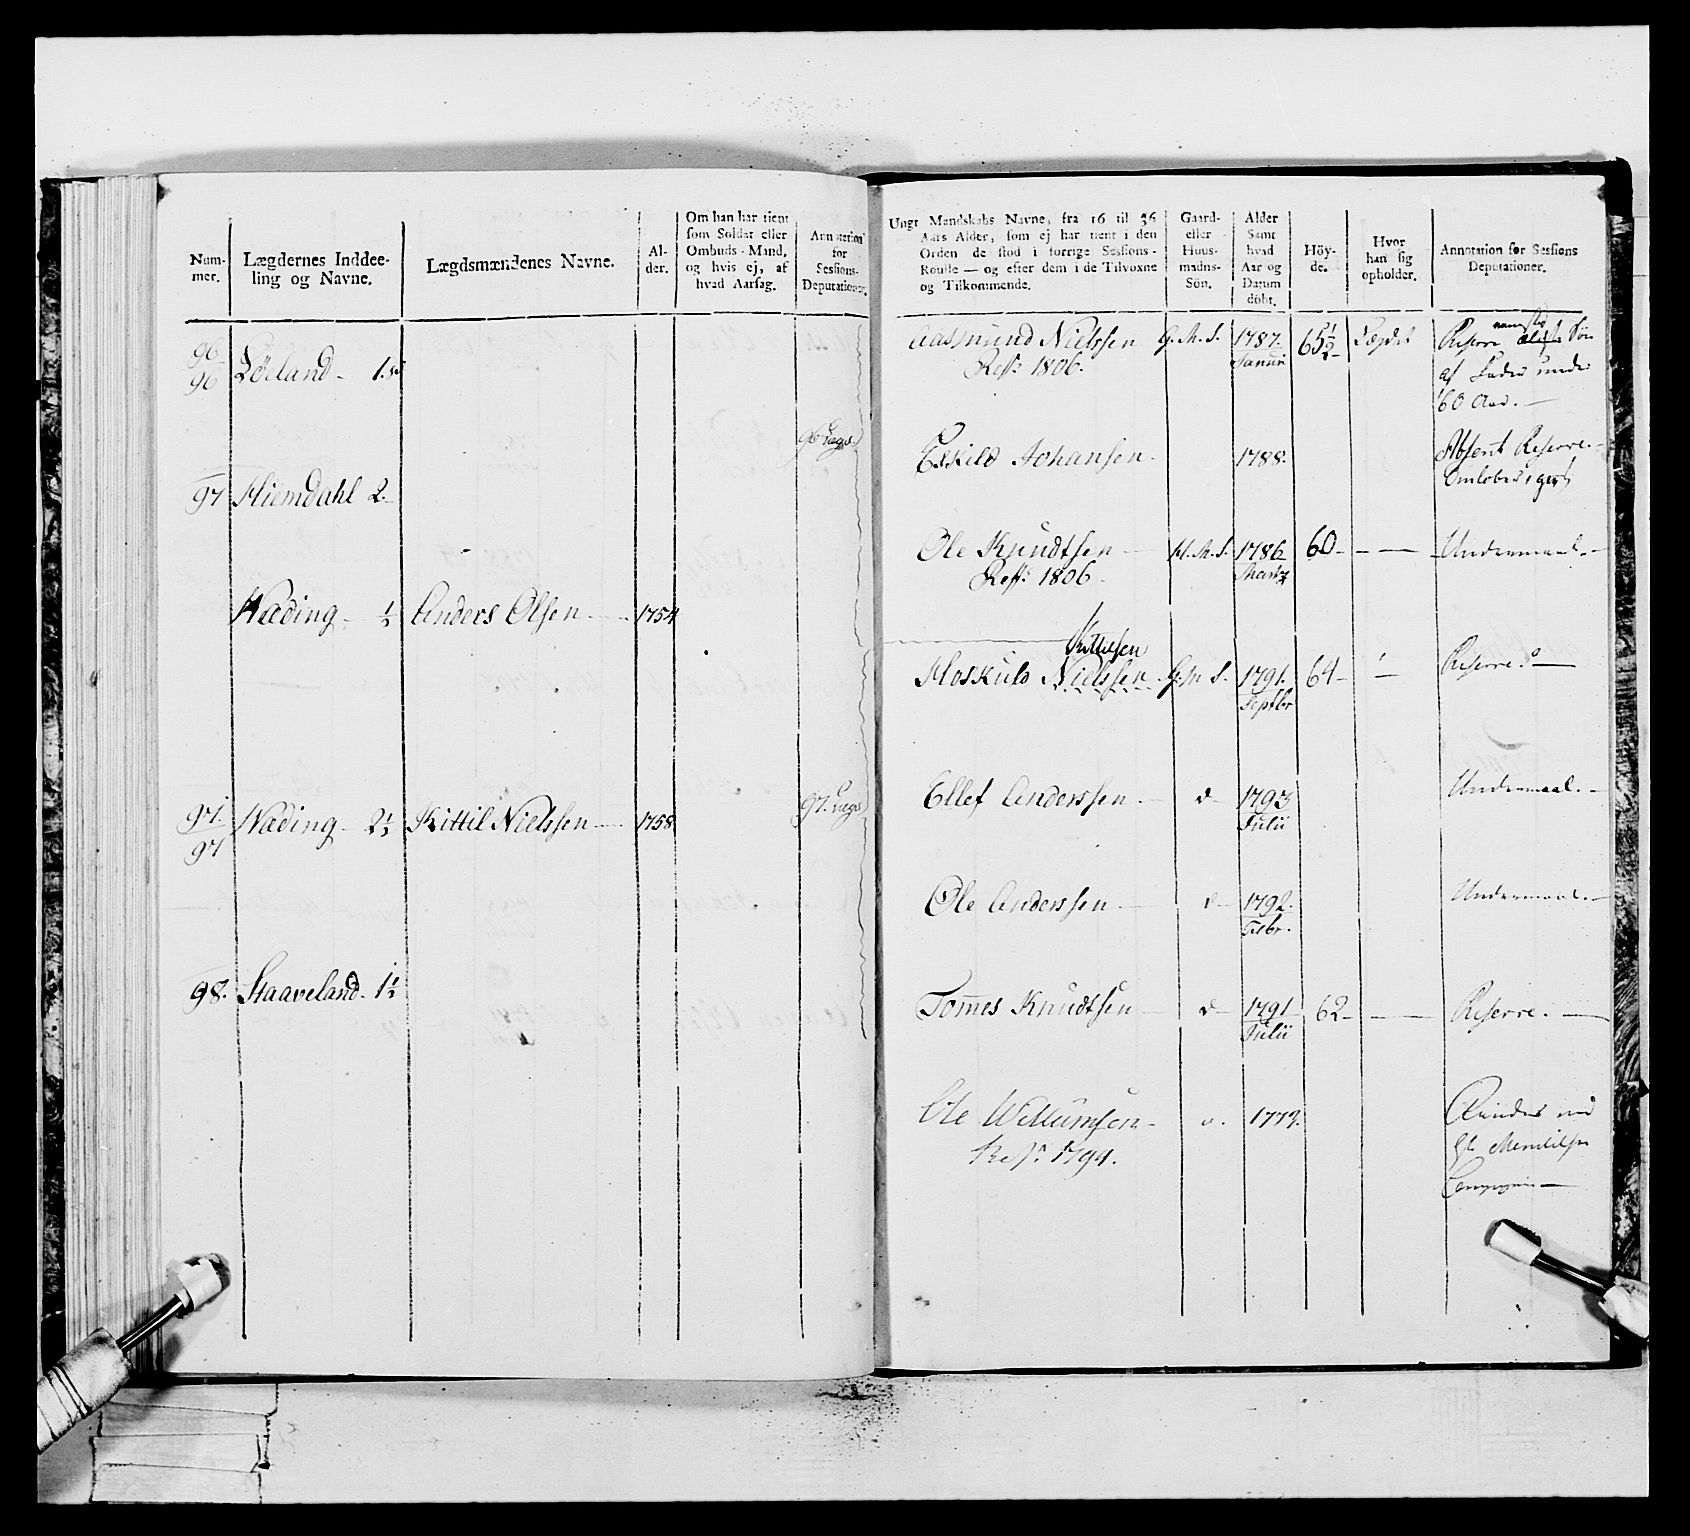 Num-
mer.
Lægdernes Inddee-
ling og Navne.
Lægdsmændenes Navne.
Al-
der.
Om han har tient
som Soldat eller
Ombuds-Mand,
og hvis ej, af
hvad Aarsag.
Annotation
for
Sessions-
Deputationer.
96
96 Löeland - 1.
96 Lægd
97 Hiemdahl 2.
Næding - ½ Anders Olsen 1754
97.
97 Næding - 2½ Kittil Nielssen 1758
97. Lægd
98. Staaveland - 1½
Ungt Mandskabs Navne, fra 16 til 36
Aars Alder, som ej har tient i den
Orden de stod i forrige Sessions-
Roulle — og efter dem i de Tilvoxne
og Tilkommende.
Gaard-
eller
Huus-
mands-
Sön.
Alder
Samt
hvad
Aar og
Datum
döbt.
Höy-
de.
Hvor
han sig
opholder.
Annotation for Sessions
Deputationer.
Aasmund Nielssen G.M.S. 1787. 65½ Lægdet Reserve Sön
Ress: 1806. Januri af Fader under
60 Aar.
Eskild Johansen 1788. Absent Reserve.
Omlöber
Ole Knudtsen H.M.S. 1786 60 Undermaal.
Ress: 1806. Martz
Kittelsen
Hoskuld Nielssen G.M.S. 1791. 64 Reserve.
Septbr
Ellef Anderssen d 1793 Undermaal.
Julii
Ole Anderssen d 1792. Undermaal.
Febr.
Tomes Knudtsen d 1791 62 Reserve.
Julii
Ole Willumsen 1772.
Ress: 1794.
Compagnie